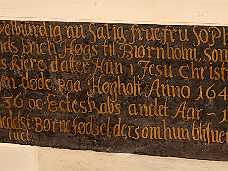 Velburdig au Salig frue fru Soph
nds Erich Høgs til Biørnholm, Som
s kiere datter Han i Jesu Christ
en døde paa Høgholt Anno 164
36 oc Ecteskabs andet Aar
edelst Børne fødsel der som hun blifue